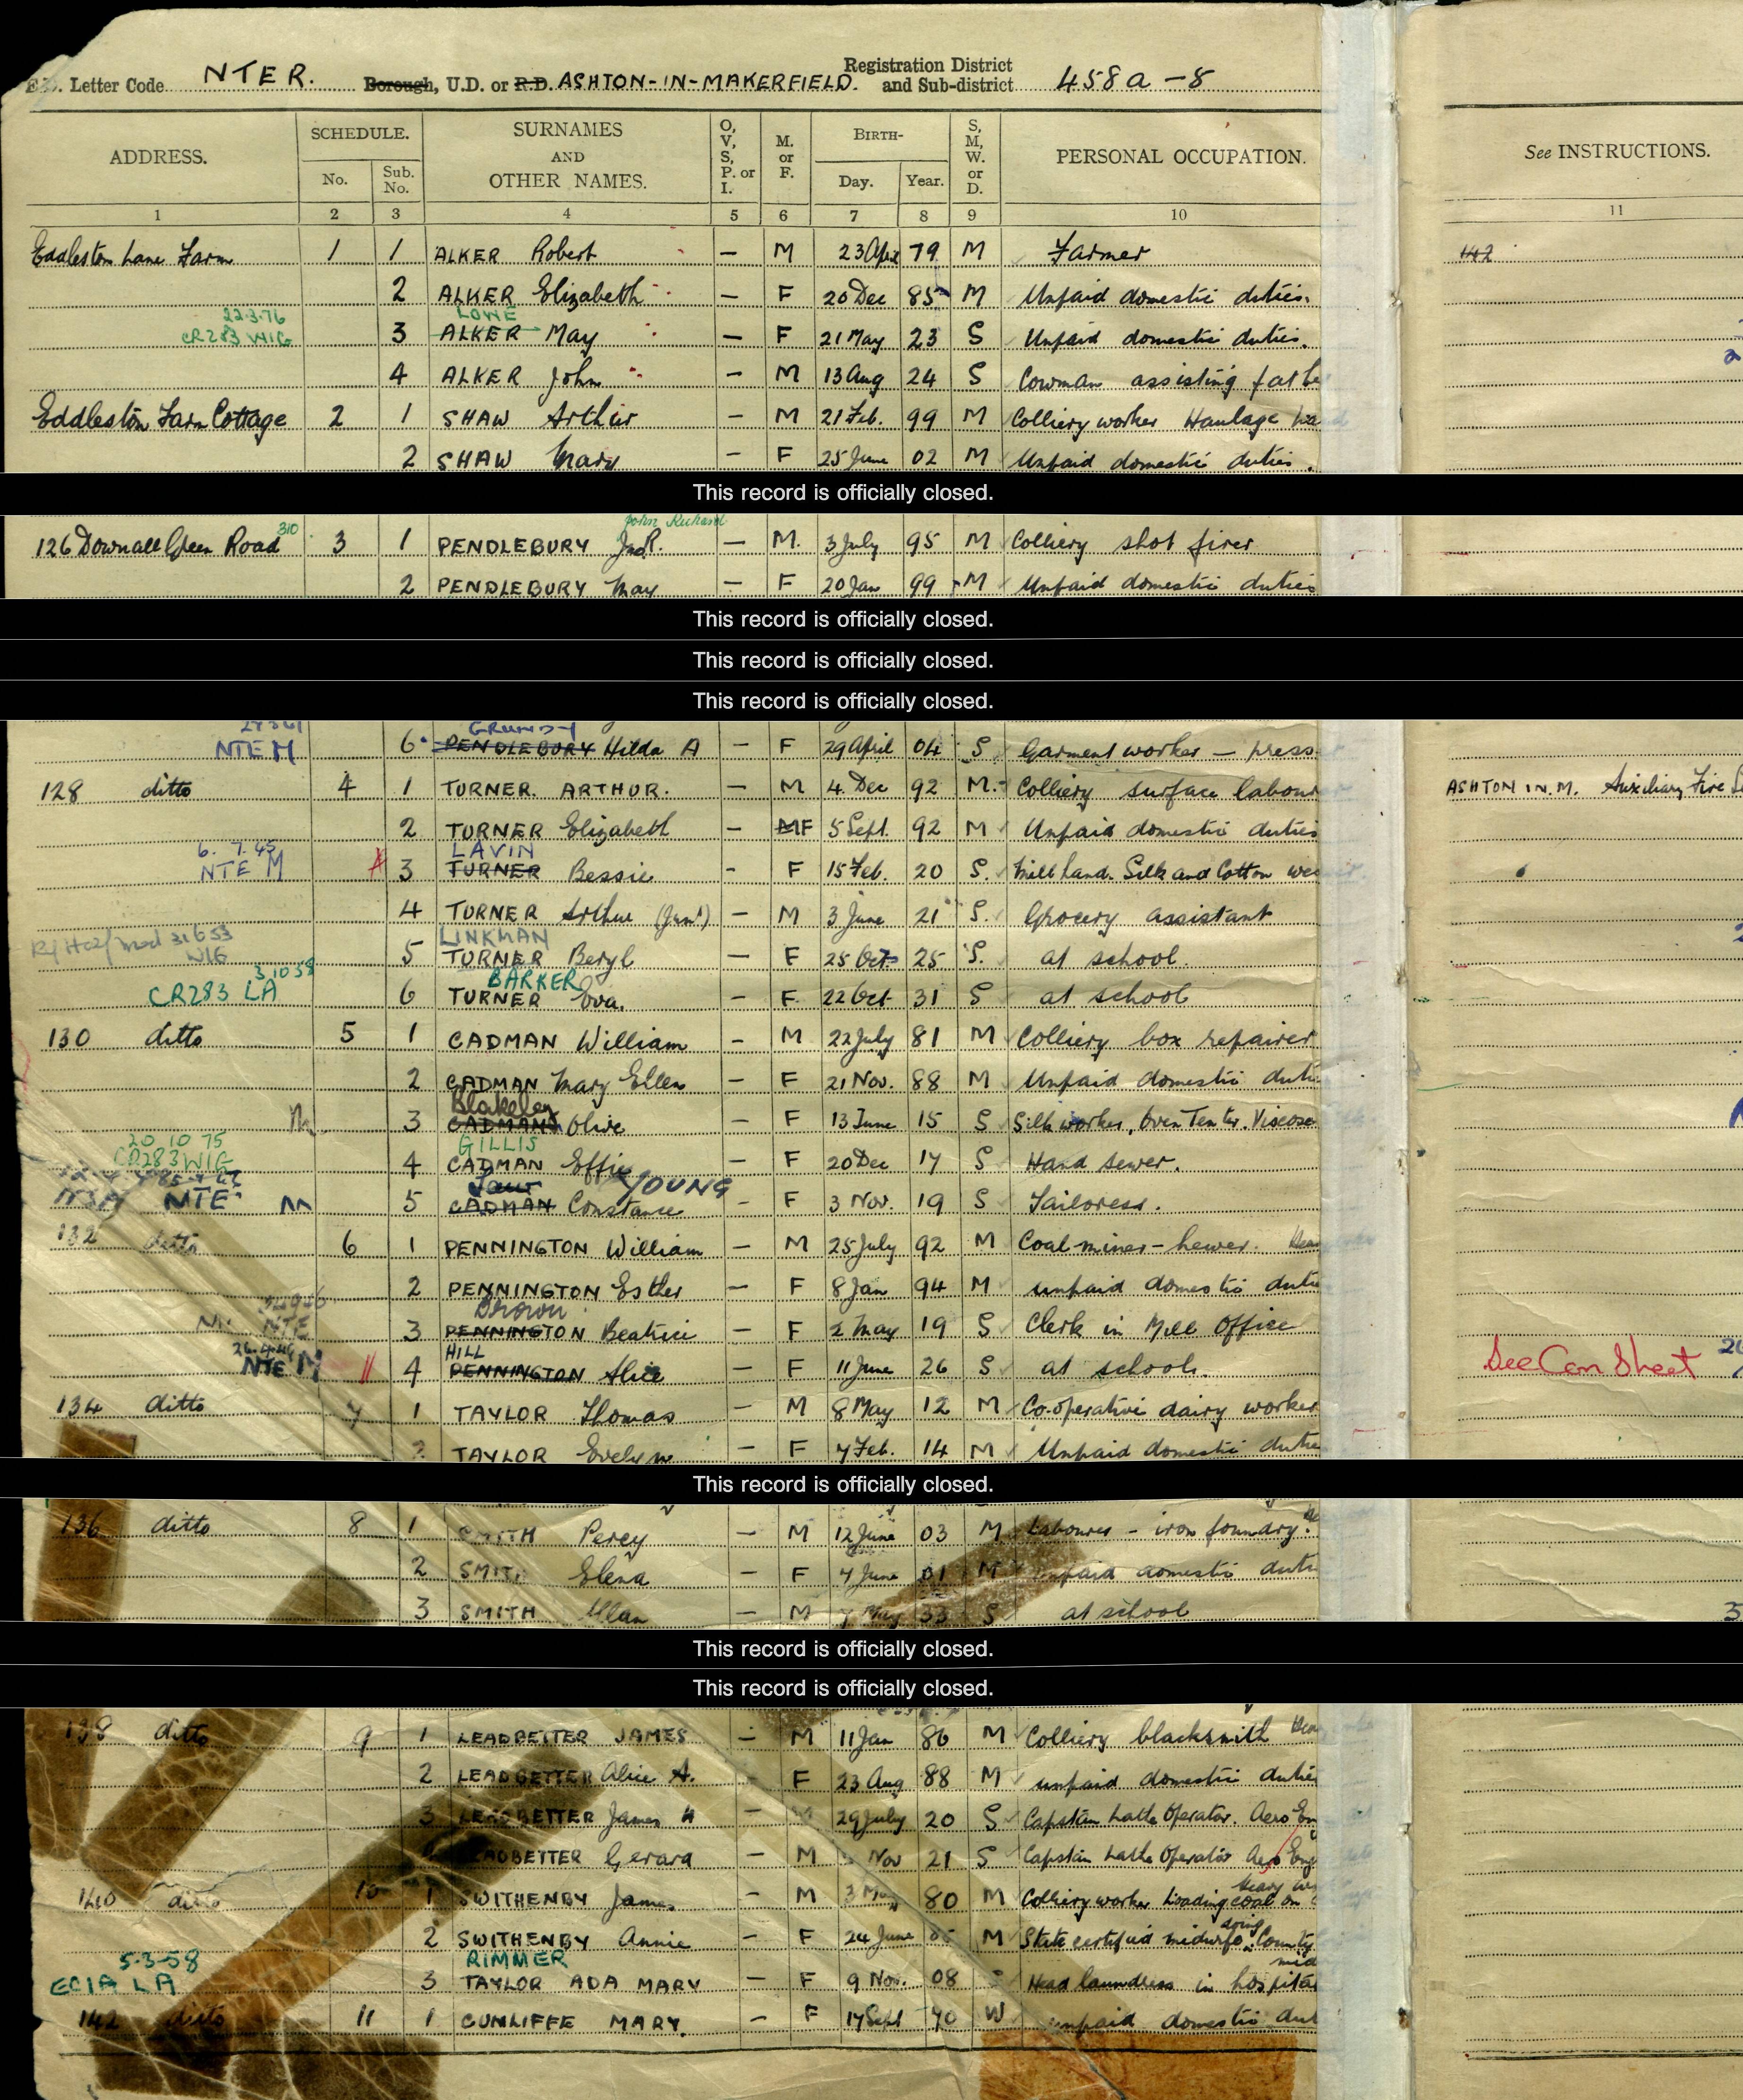 E.D. Letter Code NTER. Borough, U.D. or R.D. ASHTON-IN-MAKERFIELD. Registration District and Sub-district 458a-8
ADDRESS. SCHEDULE. No. Sub. No. SURNAMES AND OTHER NAMES. O, V, S, P. or I. M. or F. BIRTH- Day. Year. S, M, W. or D. PERSONAL OCCUPATION. See INSTRUCTIONS.
1 2 3 4 5 6 7 8 9 10 11
Eddleston Lane Farm 1 1 ALKER Robert — M 23 Apr 79 M Farmer 142
2 ALKER Elizabeth — F 20 Dec 85 M Unpaid domestic duties.
22.3.76 LOWE
CR283 WIG 3 ALKER May — F 21 May 23 S Unpaid domestic duties.
4 ALKER John — M 13 Aug 24 S Cowman assisting fathe
Eddleston Farm Cottage 2 1 SHAW Arthur — M 21 Feb. 99 M Colliery worker Haulage
2 SHAW Mary — F 25 June 02 M Unpaid domestic duties.
This record is officially closed.
310 John Richard
126 Downall Green Road 3 1 PENDLEBURY Jno R. — M. 3 July 95 M Colliery shot firer
2 PENDLEBURY May — F 20 Jan 99 M Unpaid domestic duties
This record is officially closed.
This record is officially closed.
This record is officially closed.
GRUNDY
NTE M 6 PENDLEBURY Hilda A — F 29 April 04 S Garment worker — press
128 ditto 4 1 TURNER. ARTHUR. — M 4. Dec 92 M. Colliery surface labour ASHTON IN. M. Auxiliary Fire
2 TURNER Elizabeth — MF 5 Sept. 92 M Unpaid domestic duties
6. 7. 45 LAVIN
NTE M 3 TURNER Bessie - F 15 Feb. 20 S. Mill hand. Silk and Cotton
4 TURNER Arthur (Junr) — M 3 June 21 S. Grocery assistant
31653 WIG LINKMAN
5 TURNER Beryl — F 25 Oct 25 S. at school.
3.10.58 BARKER
CR283 LA 6 TURNER Eva. — F. 22 Oct 31 S at school
130 ditto 5 1 CADMAN William — M 22 July 81 M Colliery box repairer
2 CADMAN Mary Ellen — F 21 Nov. 88 M Unpaid domestic duti
Blakeley
M 3 CADMAN Olive — F 13 June 15 S Silk worker, Oven Tenter. Viscose
20 10 75 GILLIS
CR283 WIG 4 CADMAN Effie — F 20 Dec 17 S Hand sewer.
YOUNG
NTE M 5 CADMAN Constance — F 3 Nov. 19 S Tailoress.
132 ditto 6 1 PENNINGTON William — M 25 July 92 M Coal-miner - hewer.
2 PENNINGTON Esther — F 8 Jan 94 M unpaid domestic dutie
Brown
M. NTE 3 PENNINGTON Beatrice — F 2 May 19 S Clerk in Mill Office
HILL
NTE M 4 PENNINGTON Alice — F 11 June 26 S at school. See Con Sheet
134 ditto 7 1 TAYLOR Thomas — M 8 May 12 M Co-operative dairy worker
2 TAYLOR Evelyn — F 7 Feb. 14 M Unpaid domestic dutie
This record is officially closed.
136 ditto 8 1 SMITH Percy — M 12 June 03 M Labourer - iron foundry.
2 SMITH Elena — F 7 June 01 M Unpaid domestic duti
3 SMITH Allan — M 7 May 33 S at school
This record is officially closed.
This record is officially closed.
138 ditto 9 1 LEADBETTER JAMES — M 11 Jan 86 M Colliery blacksmith
2 LEADBETTER Alice A. F 23 Aug 88 M unpaid domestic dutie
3 LEADBETTER James H — M 29 July 20 S Capstan Lathe Operator. Aero En
LEADBETTER Gerard — M Nov 21 S Capstan Lathe Operator Aero Eng
140 ditto 10 1 SWITHENBY James — M 3 May 80 M Colliery worker Loading coal on
2 SWITHENBY Annie — F 24 June M State certified midwife County
5-3-58 RIMMER
ECIA LA 3 TAYLOR ADA MARY — F 9 Nov. 08 S Head laundress in hospita
142 ditto 11 1 CUNLIFFE MARY. — F 17 Sept 70 W unpaid domestic dut